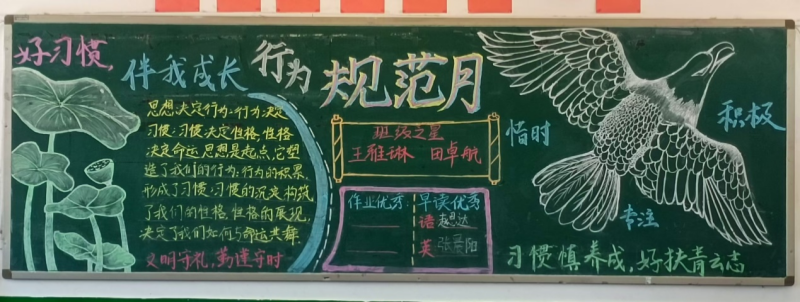 好习惯,
伴我成长
行为
规范月
思想决定行为,行为决定
习惯,习惯决定性格,性格
决定命运,思想是起点,它塑
造了我们的行为,行为的积累,
形成了习惯,习惯的沉淀构筑
了我们的性格,性格的展现,
决定了我们如何与命运共舞.
文明守礼,勤违守时
班级之星
王雅琳 田卓航
作业优秀:
早读优秀
语 赵思达
英 张晏阳
惜时
积极
专注
习惯慎养成,好扶青云志